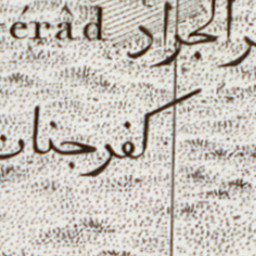 érâd
الجراد
كفرجنات